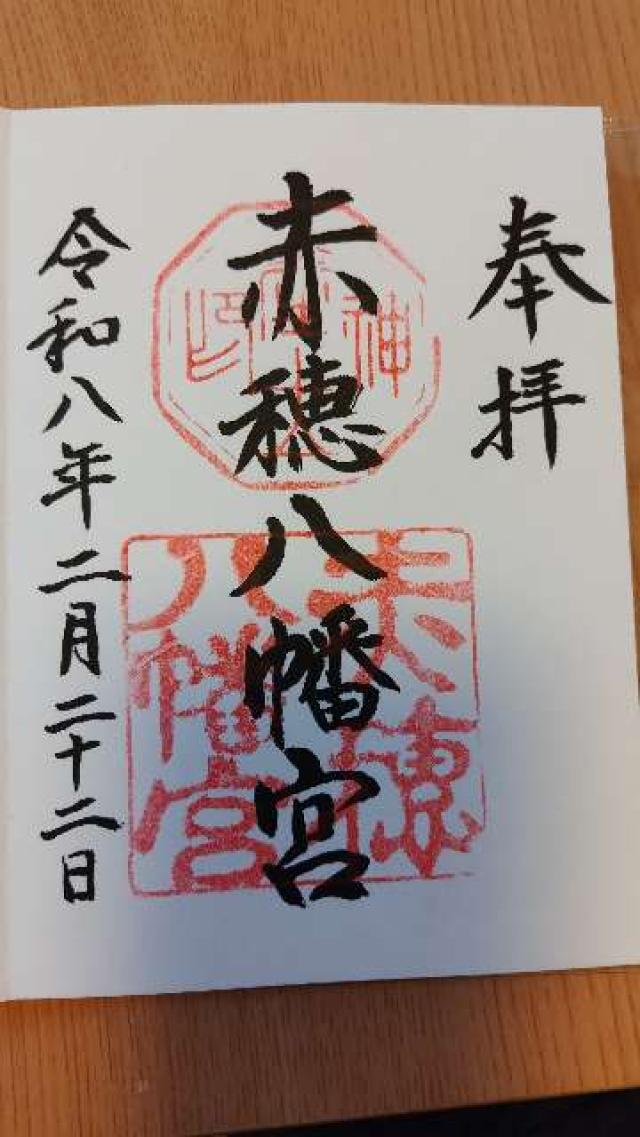 奉拝
赤穂八幡宮
令和八年二月二十二日
赤穂
八幡宮